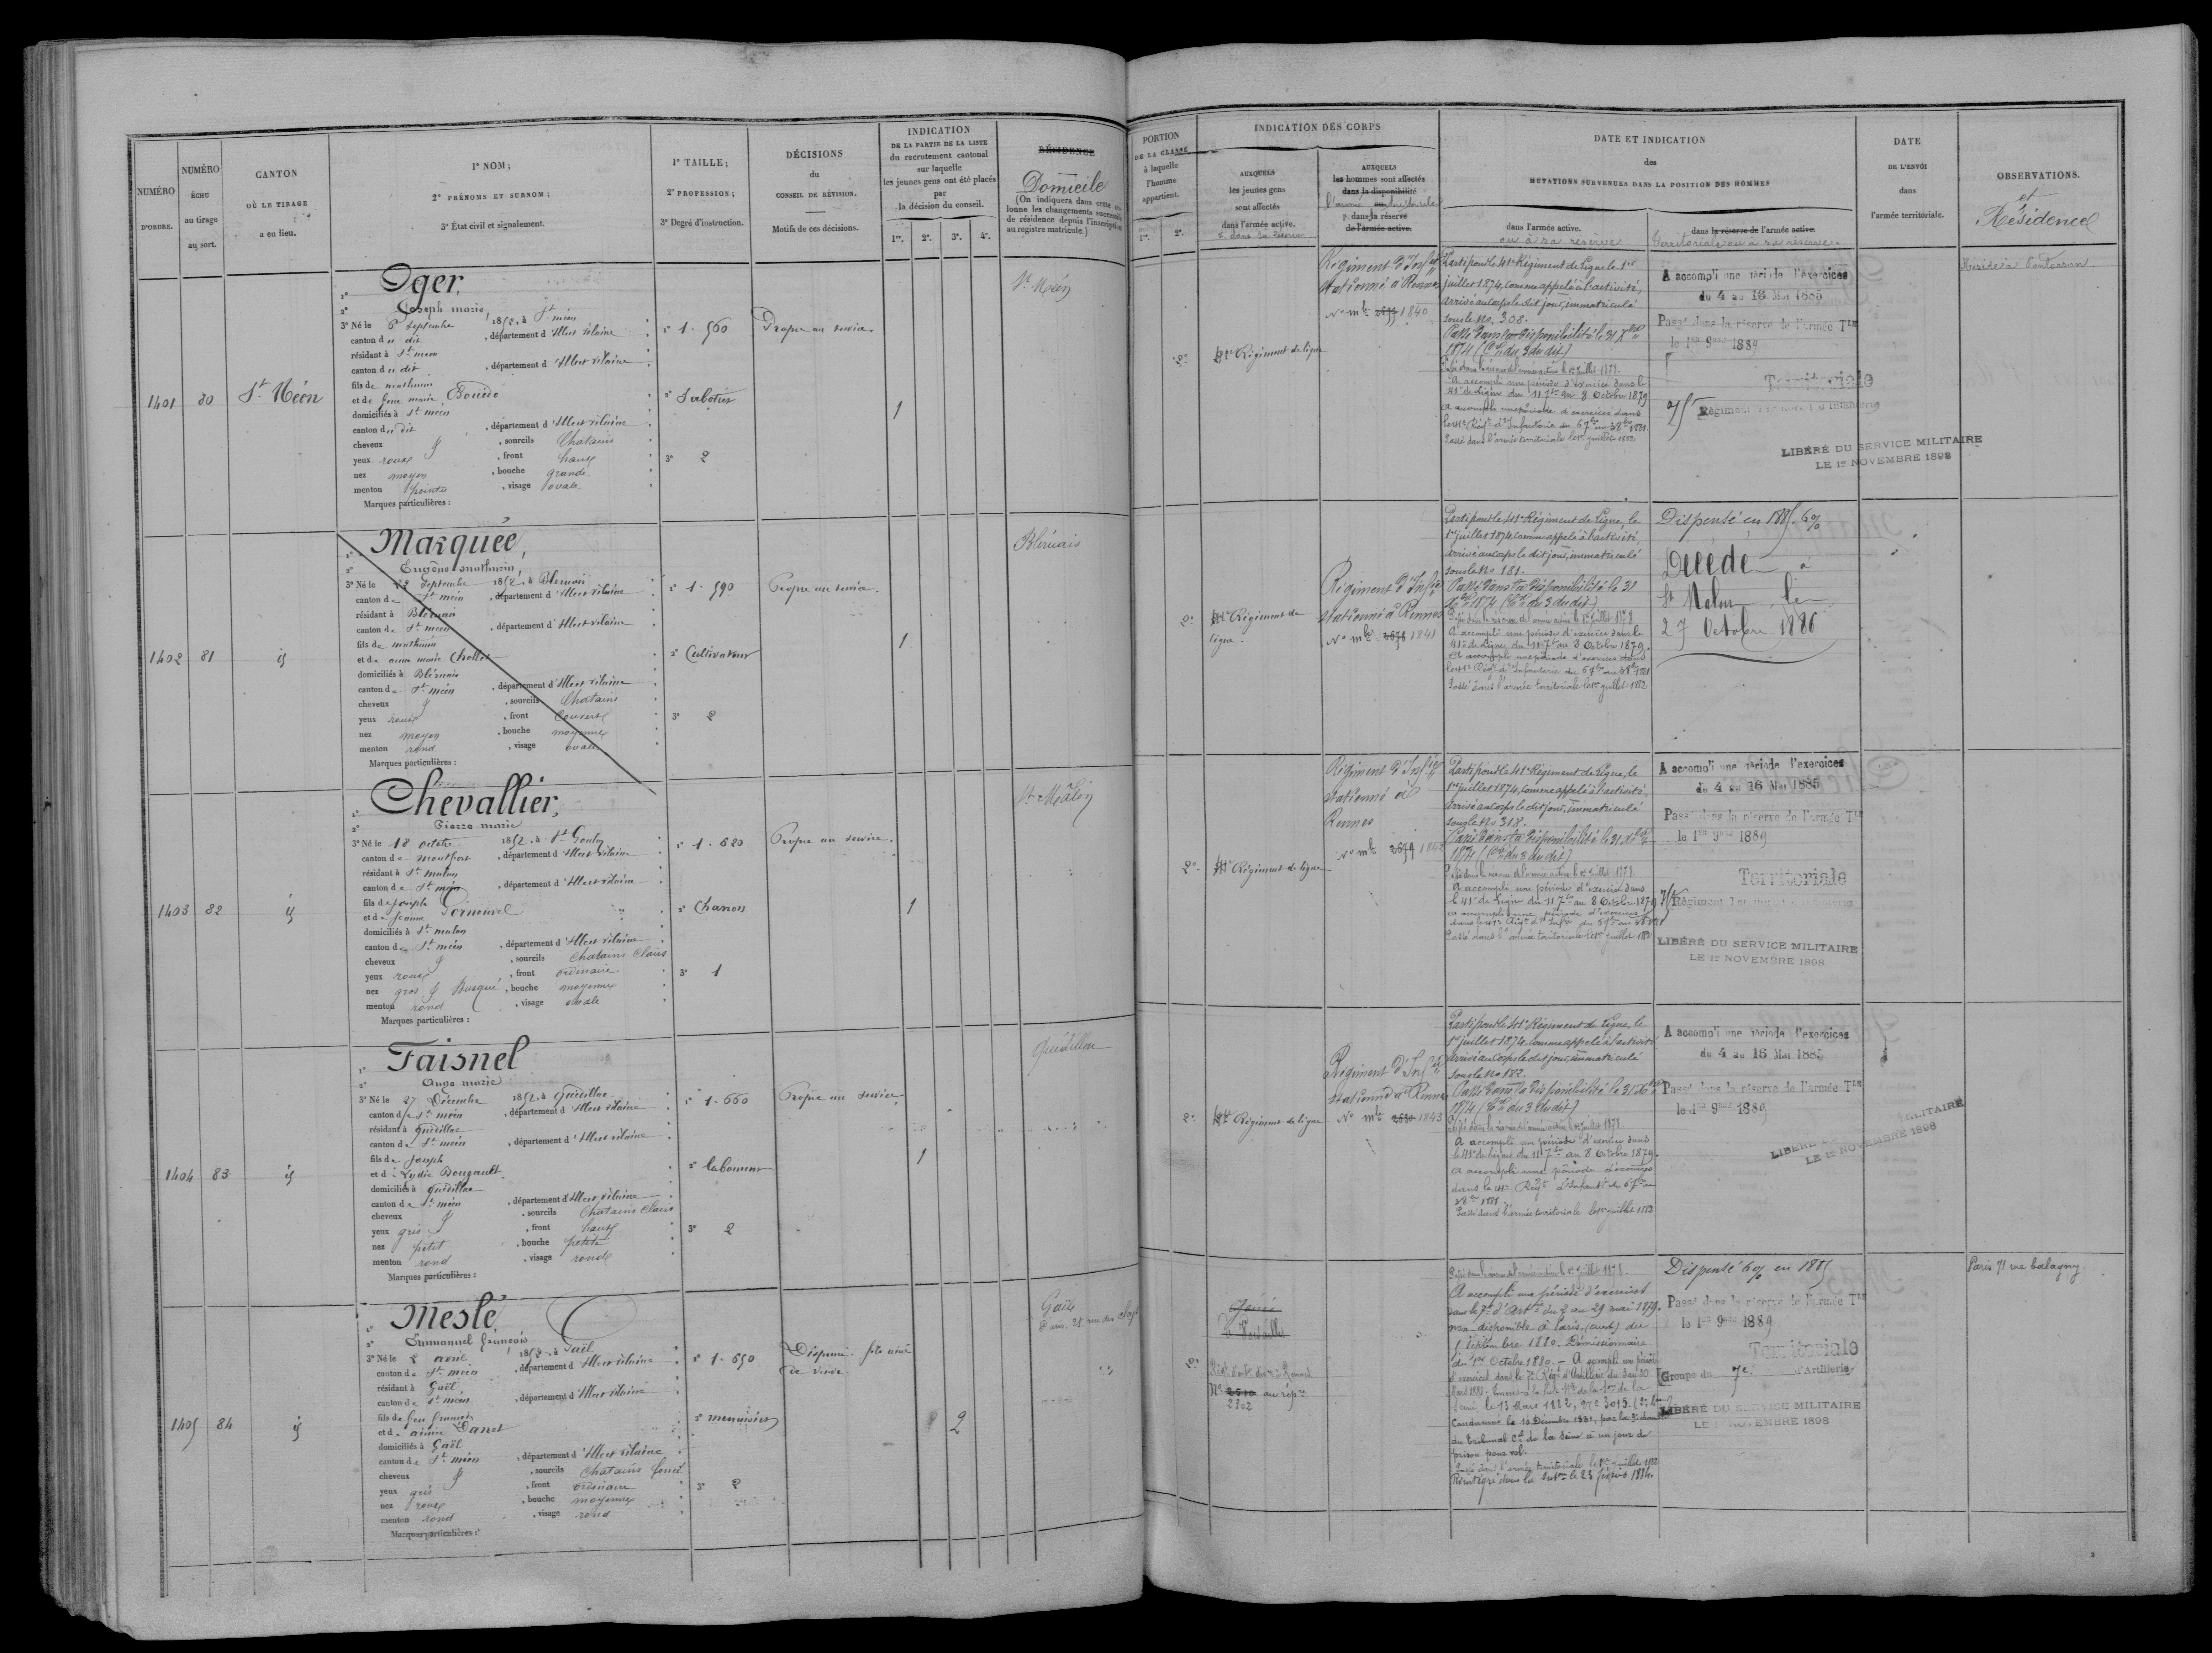 NUMÉRO
D'ORDRE.
NUMÉRO
ÉCHU
au tirage
au sort.
CANTON
OÙ LE TIRAGE
a eu lieu.
1° NOM;
2° PRÉNOMS ET SURNOM;
3° État civil et signalement.
1° TAILLE;
2° PROFESSION;
3° Degré d'instruction.
DÉCISIONS
du
CONSEIL DE RÉVISION.
Motifs de ces décisions.
INDICATION
DE LA PARTIE DE LA LISTE
du recrutement cantonal
sur laquelle
les jeunes gens ont été placés
par
la décision du conseil.
1re. 2e. 3e. 4e.
RÉSIDENCE
Domicile
(On indiquera dans cette co-
lonne les changements successifs
de résidence depuis l'inscription
au registre matricule.)
1401
80
St Méen
1° Oger,
2° Joseph marie,
3° Né le 6 Septembre 1852, à St méen
canton du dit, département d'Ille et vilaine
résidant à St méen
canton du dit, département d'Ille et vilaine
fils de mathurin
et de feue marie
domiciliés à St méen
canton du dit, département d'Ille et vilaine
cheveux & , sourcils Chatains
yeux roux, front haut
nez moyen, bouche grande
menton pointu, visage ovale
Marques particulières :
1° 1.560
2° Sabotier
3° 2
Propre au service.
1
St Méen
1402
81
id
1° Marquée,
2° Eugène mathurin,
3° Né le Septembre 1852, à Bléruais
canton de St méen, département d'Ille et vilaine
résidant à Bléruais
canton de St méen, département d'Ille et vilaine
fils de mathurin
et de anne marie Chollet
domiciliés à Bléruais
canton de St méen, département d'Ille et vilaine
cheveux & , sourcils Chatains
yeux roux, front Couvert
nez moyen, bouche moyenne
menton rond, visage ovale
Marques particulières :
1° 1.590
2° Cultivateur
3° 2
Propre au service.
1
Bléruais
1403
82
id
1° Chevallier,
2° Pierre marie
3° Né le 18 octobre 1852, à St Gonlay
canton de montfort, département d'Ille et vilaine
résidant à St malon
canton de St méen, département d'Ille et vilaine
fils de Joseph
et de Jeanne
domiciliés à St malon
canton de St méen, département d'Ille et vilaine
cheveux & , sourcils Chatains Clairs
yeux roux, front ordinaire
nez gros & Busqué, bouche moyenne
menton rond, visage ovale
Marques particulières :
1° 1.680
2° Charron
3° 1
Propre au service.
1
St Malon
1404
83
id
1° Faisnel
2° Ange marie
3° Né le 27 Décembre 1852, à Quédillac
canton de St méen, département d'Ille et vilaine
résidant à Quédillac
canton de St méen, département d'Ille et vilaine
fils de Joseph
et de Lydie Bougault
domiciliés à Quédillac
canton de St méen, département d'Ille et vilaine
cheveux & , sourcils Chatains Clairs
yeux gris, front haut
nez petit, bouche petite
menton rond, visage rond
Marques particulières :
1° 1.660
2° laboureur
3° 2
Propre au service
1
Quédillac
1405
84
id
1° Meslé
2° Emmanuel françois
3° Né le 2 avril 1852, à Gaël
canton de St méen, département d'Ille et vilaine
résidant à Gaël
canton de St méen, département d'Ille et vilaine
fils de feu françois
et de aimée Danet
domiciliés à Gaël
canton de St méen, département d'Ille et vilaine
cheveux & , sourcils Chatains foncé
yeux gris, front ordinaire
nez roux, bouche moyenne
menton rond, visage rond
Marques particulières :
1° 1.650
2° menuisier
3° 2
Dispensé. fils ainé
de veuve.
2
Gaël
Paris, 21. rue des
PORTION
DE LA CLASSE
à laquelle
l'homme
appartient.
1re. 2e.
INDICATION DES CORPS
AUXQUELS
les jeunes gens
sont affectés
dans l'armée active.
& dans sa réserve
AUXQUELS
les hommes sont affectés
dans la disponibilité
l'armée territoriale
& dans sa réserve
de l'armée active.
DATE ET INDICATION
des
MUTATIONS SURVENUES DANS LA POSITION DES HOMMES
dans l'armée active.
ou à sa réserve
dans la réserve de l'armée active.
Territoriale ou à sa réserve.
DATE
DE L'ENVOI
dans
l'armée territoriale.
OBSERVATIONS.
et
Résidence
2e
41e Régiment de ligne
Régiment d'Infie
stationné à Rennes
No mle 2677 1840
Parti pour le 41e Régiment de Ligne le 1er
juillet 1874, comme appelé à l'activité,
Arrivé au Corps le dit jour, immatriculé
sous le No 308.
Passé dans la Disponibilité le 31 Xbre
1874 (Con du 3 du dit)
Passé dans la réserve de l'armée active le 1er Juillet 1878.
A accompli une période d'exercice dans le
41e de Ligne du 11 7bre au 8 Octobre 1879
A accompli une période d'exercices dans
le 41e Régt d'Infanterie du 6 7bre au 3 8bre 1881.
Passé dans l'armée territoriale le 1er juillet 1882
A accompli une période d'exercices
du 4 au 16 Mai 1885
Passé dans la réserve de l'armée Tle
le 1er 9bre 1889
Territoriale
75e Régiment Territorial d'Infanterie
LIBÉRÉ DU SERVICE MILITAIRE
LE 1er NOVEMBRE 1898
Réside à Pontorson.
2e
41e Régiment de
ligne.
Régiment d'Infie
stationné à Rennes
No mle 2678 1841
Parti pour le 41e Régiment de Ligne, le
1er juillet 1874, comme appelé à l'activité,
Arrivé au corps le dit jour, immatriculé
sous le No 181.
Passé dans la Disponibilité le 31
Xbre 1874 (Con du 3 du dit)
Passé dans la réserve de l'armée active le 1er Juillet 1878.
A accompli une période d'exercice dans le
41e de Ligne du 11 7bre au 8 Octobre 1879.
A accompli une période d'exercices dans
le 41e Régt d'Infanterie du 6 7bre au 3 8bre 1881
Passé dans l'armée territoriale le 1er juillet 1882
Dispensé en 1885. 6%
Décédé à
St Malon le
27 Octobre 1886
2e
41e Régiment de ligne
Régiment d'Infie
stationné à
Rennes
No mle 2679 1842
Parti pour le 41e Régiment de Ligne, le
1er juillet 1874, comme appelé à l'activité
Arrivé au Corps le dit jour, immatriculé
sous le No 318.
Passé dans la Disponibilité le 31 Xbre
1874 (Con du 3 du dit)
Passé dans la réserve de l'armée active le 1er Juillet 1878.
A accompli une période d'exercice dans
le 41e de Ligne du 11 7bre au 8 Octobre 1879
A accompli une période d'exercices
dans le 41e Régt d'Infie du 6 7bre au 3 8bre 1881
Passé dans l'armée territoriale le 1er juillet 1882
A accompli une période d'exercices
du 4 au 16 Mai 1885
Passé dans la réserve de l'armée Tle
le 1er 9bre 1889
Territoriale
75e Régiment Territorial d'Infanterie
LIBÉRÉ DU SERVICE MILITAIRE
LE 1er NOVEMBRE 1898
2e
41e Régiment de ligne
Régiment d'Infie
stationné à Rennes
No mle 2680 1843
Parti pour le 41e Régiment de Ligne, le
1er juillet 1874, comme appelé à l'activité
Arrivé au Corps le dit jour, immatriculé
sous le No 182.
Passé dans la Disponibilité le 31 Xbre
1874 (Con du 3 du dit)
Passé dans la réserve de l'armée active le 1er juillet 1878.
A accompli une période d'exercice dans
le 41e de Ligne du 11 7bre au 8 Octobre 1879.
A accompli une période d'exercices
dans le 41e Régt d'Infanterie du 6 7bre au
3 8bre 1881.
Passé dans l'armée territoriale le 1er juillet 1882
A accompli une période d'exercices
du 4 au 16 Mai 1885
Passé dans la réserve de l'armée Tle
le 1er 9bre 1889
LIBÉRÉ MILITAIRE
LE 1er NOVEMBRE 1898
2e
Génie
Versailles
Régt d'artie à Rennes
No 2510 au rép.re
2302
Passé dans la réserve de l'armée active le 1er juillet 1878.
A accompli une période d'exercices
dans le 7e d'Artie du 2 au 29 mai 1879.
non disponible à Paris du
1 Septembre 1880. Démissionnaire
du 1er Octobre 1880. — A accompli une période
d'exercices dans le 7e Régt d'Artillerie du 3 au 30
le 13 Mars 1882, No 3015
Condamné le 10 Décembre 1881, par la 9e chambre
du tribunal Cel de la Seine à un jour de
prison pour vol.
Passé dans l'armée territoriale le 1er juillet 1882
Réintégré dans la le 23 février 1884.
Dispensé 6% en 1885
Passé dans la réserve de l'armée Tle
le 1er 9bre 1889
Territoriale
Groupe du 7e d'Artillerie
LIBÉRÉ DU SERVICE MILITAIRE
LE 1er NOVEMBRE 1898
Paris 71 rue balagny.